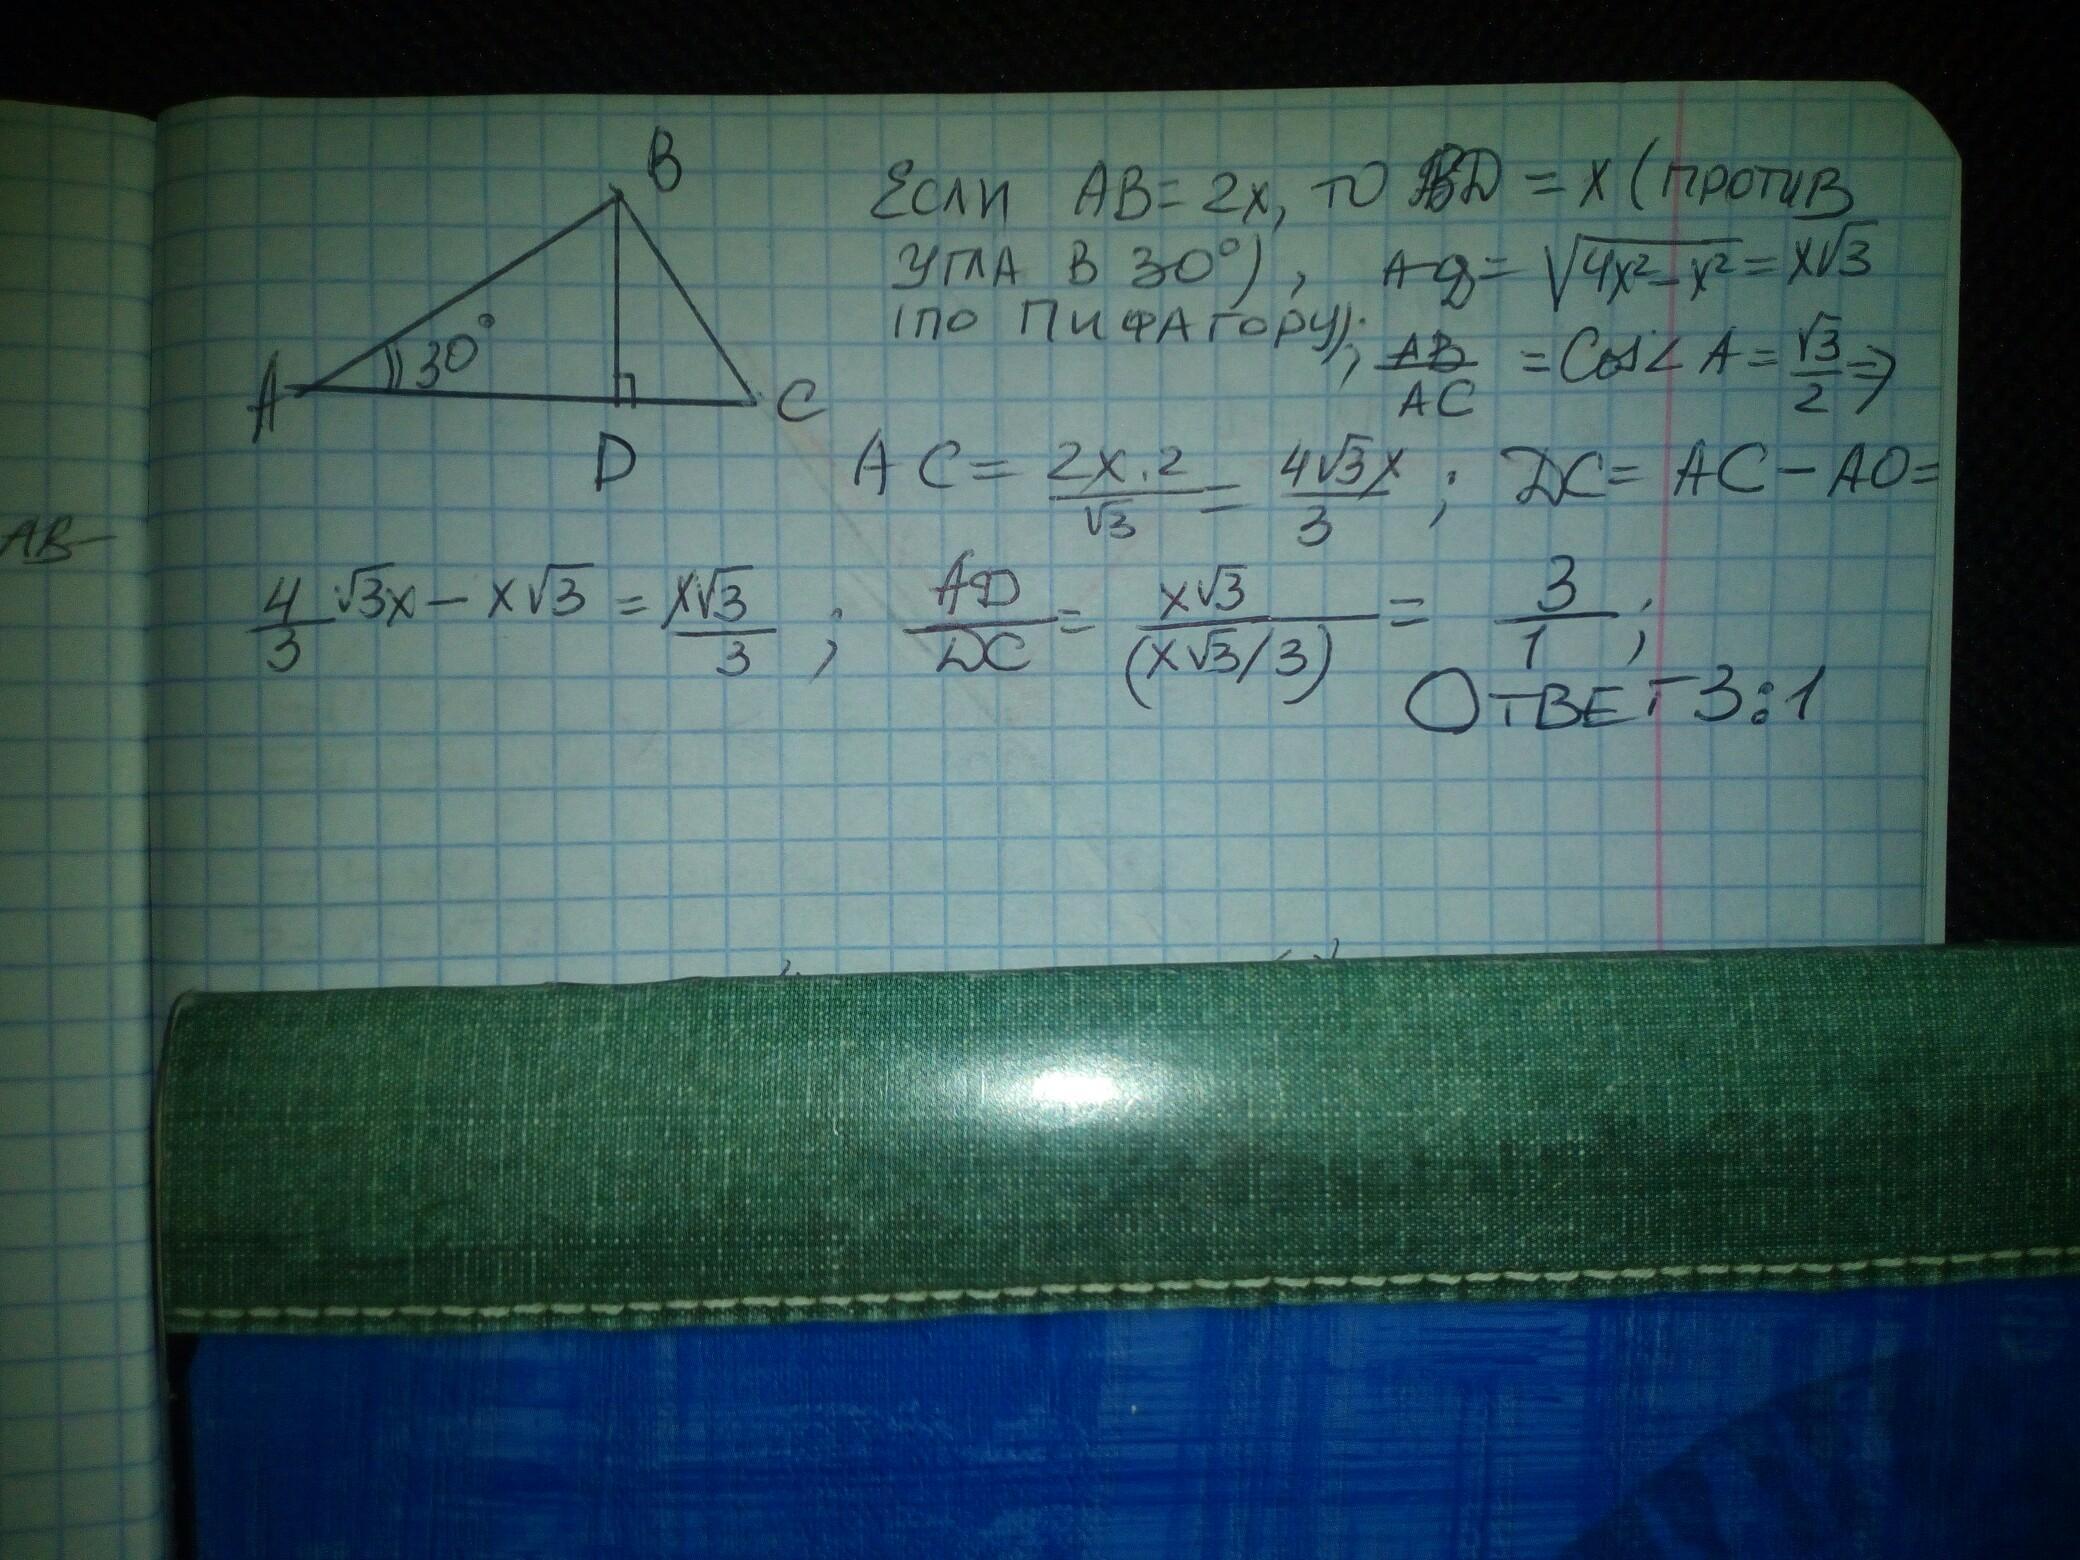 B
Если AB = 2x, то BD = x (против
угла в 30°), AD = √4x² – x² = x√3
(по Пифагору);
AB/AC = Cos∠A = √3/2 ⇒
30°
A
C
D
AC = 2x·2/√3 = 4√3x/3; DC = AC – AD =
AB–
4/3 √3x – x√3 = x√3/3; AD/DC = x√3/(x√3/3) = 3/1;
Ответ 3:1